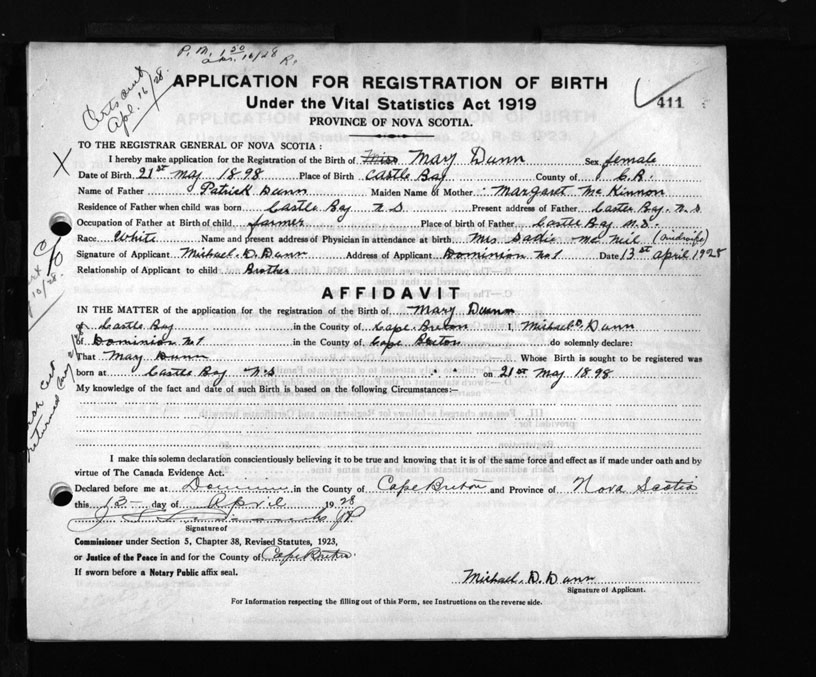 P.M. 1 50
Apr. 16/28 R.
Certs out
Apl. 16/28
APPLICATION FOR REGISTRATION OF BIRTH
411
Under the Vital Statistics Act 1919
PROVINCE OF NOVA SCOTIA.
TO THE REGISTRAR GENERAL OF NOVA SCOTIA :
X I hereby make application for the Registration of the Birth of Miss Mary Dunn Sex female
Date of Birth 21st May 1898 Place of Birth Castle Bay County of C.B.
Name of Father Patrick Dunn Maiden Name of Mother Margaret McKinnon
Residence of Father when child was born Castle Bay N S Present address of Father Castle Bay, N.S
Occupation of Father at Birth of child farmer Place of birth of Father Castle Bay N.S.
Race White Name and present address of Physician in attendance at birth Mrs Sadie McNeil (midwife)
Signature of Applicant Michael D. Dunn Address of Applicant Dominion No 1 Date 13st April 1928
Relationship of Applicant to child Brother
AFFIDAVIT
IN THE MATTER of the application for the registration of the Birth of Mary Dunn
of Castle Bay in the County of Cape Breton I, Michael D. Dunn
of Dominion No 1 in the County of Cape Breton do solemnly declare:
That Mary Dunn Whose Birth is sought to be registered was
born at Castle Bay N.S on 21st May 1898
My knowledge of the fact and date of such Birth is based on the following Circumstances:—
I make this solemn declaration conscientiously believing it to be true and knowing that it is of the same force and effect as if made under oath and by
virtue of The Canada Evidence Act.
Declared before me at Dominion in the County of Cape Breton and Province of Nova Scotia
this 13 day of April 1928
Signature of
Commissioner under Section 5, Chapter 38, Revised Statutes, 1923,
or Justice of the Peace in and for the County of Cape Breton.
If sworn before a Notary Public affix seal.
Michael. D. Dunn
Signature of Applicant.
For Information respecting the filling out of this Form, see Instructions on the reverse side.